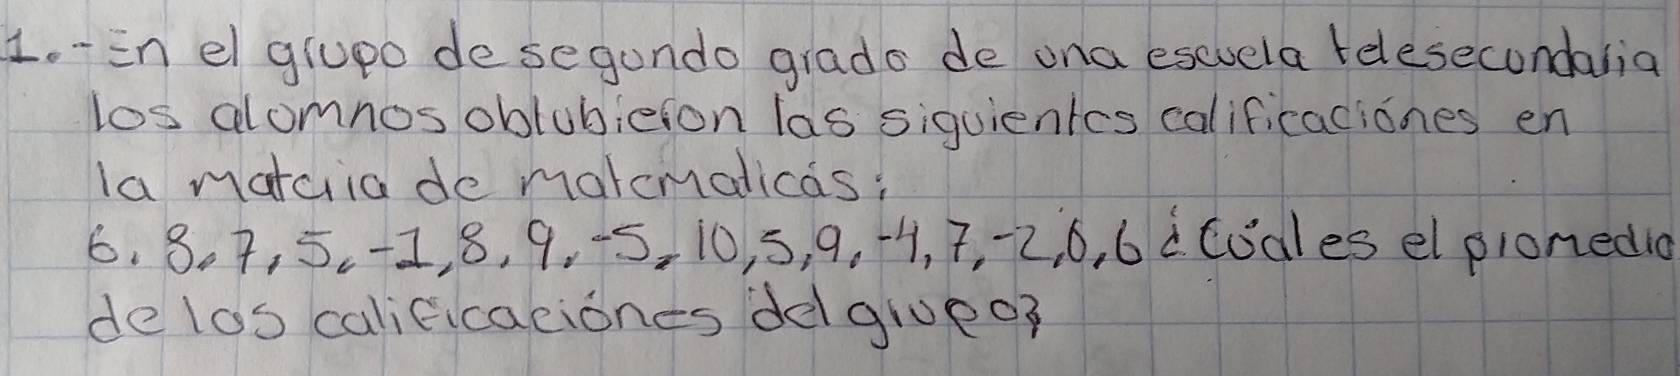 1.- En el grupo de segundo grado de una escuela telesecundaria
los alumnos obtubieron las siguientes calificaciónes en
la materia de matematicas:
6, 8, 7, 5, -1, 8, 9, -5, 10, 5, 9, -4, 7, -2, 6, 6 ¿Cuál es el promedio
de las calificaciónes del grupo?